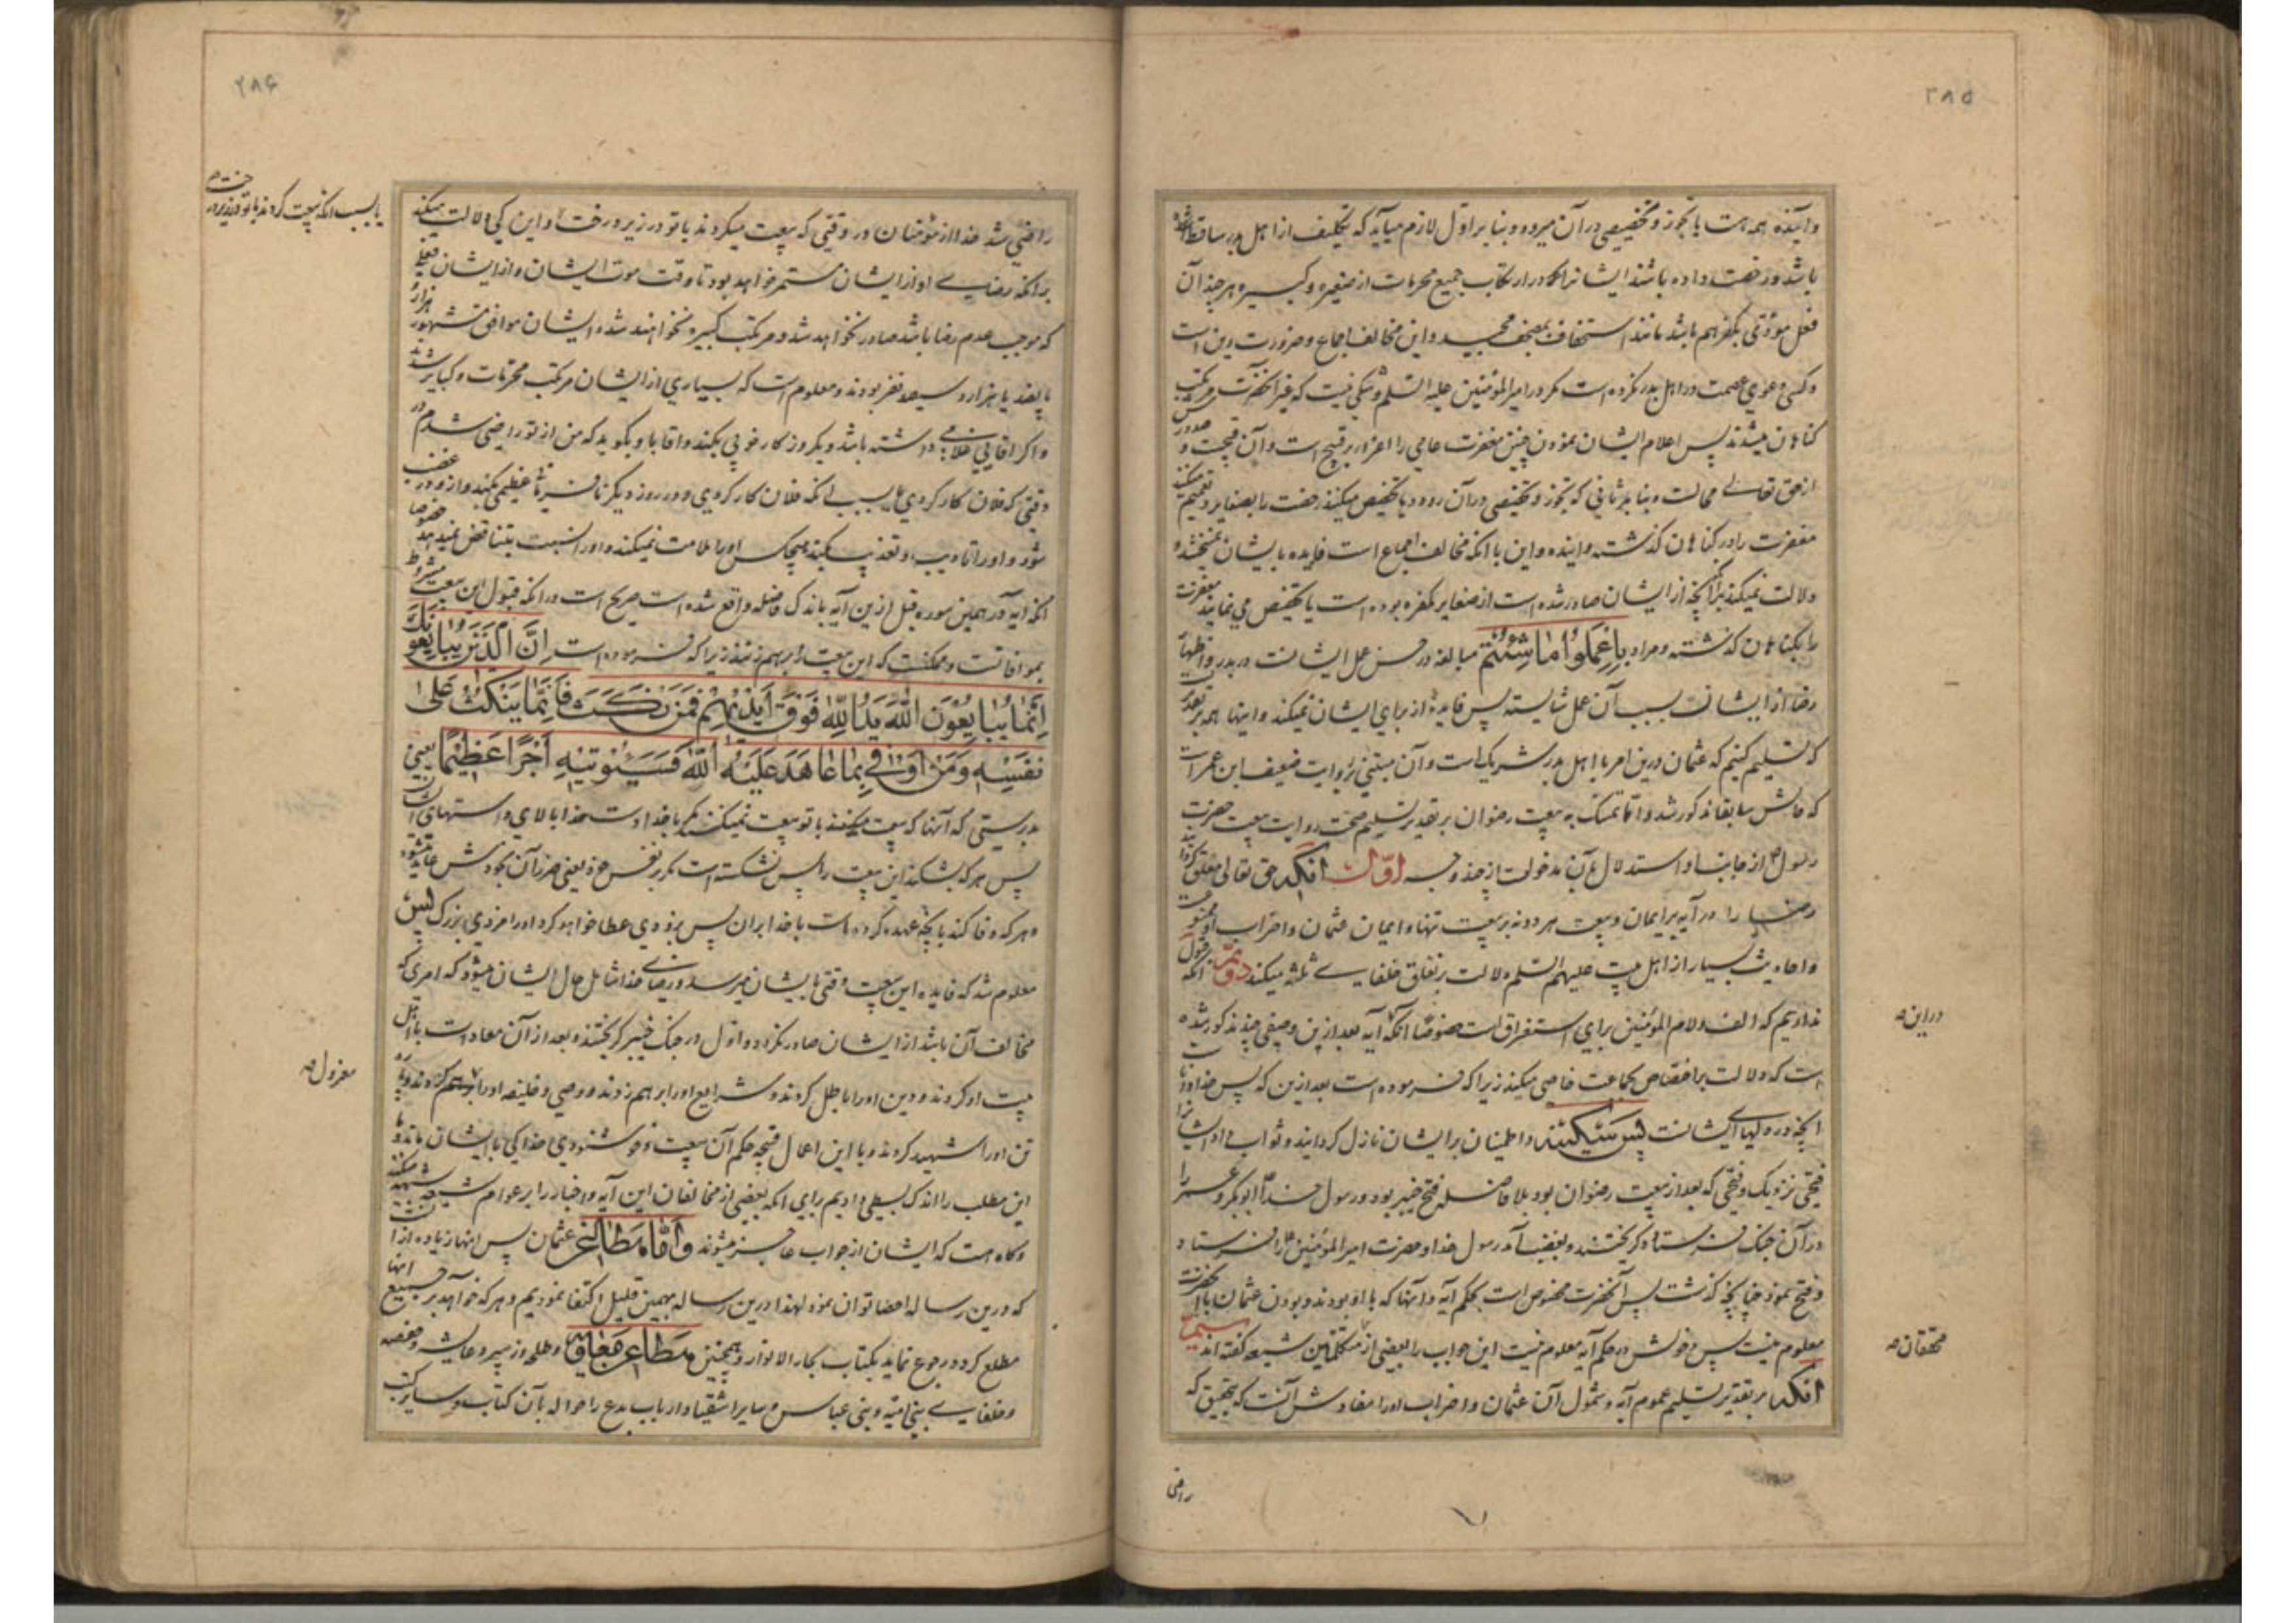 ۲۸۵
وآینده همه هست یا تجوز و تخصیصی در آن میرود و بنا بر اول لازم میآید که تکلیف از اهل بدر ساقط شده
باشد و رخصت داده باشند ایشانرا که در ارتکاب جمیع محرمات از صغیره و کبیره هر چند آن
فعل مؤدّی بکفر هم باشد مانند استخفاف بمصحف مجید و این مخالف اجماع و ضرورت دین است
و کسی دعوی عصمت در اهل بدر نکرده است مگر در امیر المؤمنین علیه السّلم و شکی نیست که غیر آنحضرت مرتکب
کناهان میشدند پس اعلام ایشان نمودن چنین مغفرت عامی را اغراء بر قبیح است و آن قبیحست و صدور
از حق تعالی محالست و بنا بر ثانی که تجوز و تخصیصی در آن رود یا تخصیص میکنند رخصت را بصغایر و تعمیم میکنند
مغفرت را در کناهان کذشته و آینده و این با آنکه مخالف اجماع است فایده بایشان نمیبخشد و
دلالت نمیکند بر آنچه از ایشان صادر شده است از صغایر مکفره بوده است یا تخصیص می نمایند مغفرت
را بکناهان کذشته و مراد باِعْمَلُوا مَا شِئْتُمْ مبالغه در حسن عمل ایشانست در بدر و اظهار
رضا از ایشانست بسبب آن عمل شایسته پس فایدهٔ از برای ایشان نمیکند و اینها همه بر تقدیر
که تسلیم کنیم که عثمان درین امر با اهل بدر شریک است و آن مبتنی بر روایت ضعیف ابن عمر است
که حالش سابقا مذکور شد و امّا تمسّک به بیعت رضوان بر تقدیر تسلیم صحت روایت بیعت حضرت
رسول از جانب او استدلال بآن مدخولست از چند وجه اوّل آنکه حق تعالی معلق کردانیده
رضا را در آیه بر ایمان و بیعت هر دو نه بر بیعت تنها و ایمان عثمان و احزاب او ممنوعست
و احادیث بسیار از اهل بیت علیهم السّلم دلالت بر نفاق خلفای ثلثه میکند دویّم آنکه قبول
نداریم که الف و لام المؤمنین برای استغراق است خصوصًا آنکه آیه بعد ازین وصفی چند مذکور شده
است که دلالت بر اختصاص بجماعت خاصی میکند زیرا که فرموده است بعد ازین که پس خدا دانست
آنچه در دلهای ایشانست پس سَکینه و اطمینان بر ایشان نازل کردانید و ثواب داد ایشانرا
فتحی نزدیک و فتحی که بعد از بیعت رضوان بود بلا فاصله فتح خیبر بود و رسول خدا ابو بکر و عمر را
در آن جنک فرستاد و کریختند و بغضب آمد رسول خدا و حضرت امیر المؤمنین را فرستاد
و فتح نمود چنانچه کذشت پس آنحضرت مخصوص است بحکم آیه و آنها که با او بودند و بودن عثمان با آنحضرت
معلوم نیست پس دخولش در حکم آیه معلوم نیست این جواب را بعضی از متکلمین شیعه کفته اند سیّم
آنکه بر تقدیر تسلیم عموم آیه و شمول آن عثمان و احزاب او را مفادش آنست که بتحقیق که
راضی
دراین
محققان
۲۸۶
راضی شد خدا از مؤمنان در وقتی که بیعت میکردند با تو در زیر درخت و این کی دلالت میکند
بر آنکه رضای او از ایشان مستمر خواهد بود تا وقت موت ایشان و از ایشان فعلی
که موجب عدم رضا باشد صادر نخواهد شد و مرتکب کبیره نخواهند شد و ایشان موافق مشهور هزار و
پانصد یا هزار و سیصد نفر بودند و معلوم است که بسیاری از ایشان مرتکب محرّمات و کبایر شدند
و اکر آقایی غلامی داشته باشد و یکروز کار خوبی بکند و آقا باو بکوید که من از تو راضی شدم در
وقتی که فلان کار کردی یا بسبب آنکه فلان کار کردی و در روز دیکر نافرمانی عظیمی بکند و از او در غضب
شود و او را تادیب و تعذیب بکند هیچکس او را ملامت نمیکند و او را نسبت بتناقض نمیدهد خصوصا
آنکه آیه در همین سوره قبل ازین آیه باندک فاصله واقع شده است صریح است در آنکه قبول این بیعت مشروط
بموافاتست و ممکنست که این بیعت را بر هم زنند زیرا که فرموده است اِنَّ الَّذِینَ یُبَایِعُونَکَ
اِنَّمَا یُبَایِعُونَ اللّٰهَ یَدُ اللّٰهِ فَوْقَ اَیْدِیهِمْ فَمَنْ نَکَثَ فَاِنَّمَا یَنْکُثُ عَلیٰ
نَفْسِهِ وَمَنْ اَوْفیٰ بِمَا عَاهَدَ عَلَیْهُ اللّٰهَ فَسَیُؤْتِیهِ اَجْرًا عَظِیمًا یعنی
بدرستی که آنها که بیعت میکنند با تو بیعت نمیکنند مکر با خدا دست خدا بالای دستهای ایشانست
پس هر که بشکند این بیعت را پس نشکسته است مکر بر نفس خود یعنی ضرر آن بخودش عاید میشود
و هر که وفا کند بآنچه عهد کرده است با خدا بر آن پس بزودی عطا خواهد کرد او را مزدی بزرک پس
معلوم شد که فایده این بیعت وقتی بایشان میرسد و رضای خدا شامل حال ایشان میشود که امری که
مخالف آن باشد از ایشان صادر نکردد و اول در جنک خیبر کریختند و بعد از آن معادات با اهل
بیت او کردند و دین او را باطل کردند و شرایع او را بر هم زدند و وصی و خلیفه او را کردند و پاره
تن او را شهید کردند و با این اعمال قبیحه حکم آن بیعت و خوشنودی خدا کی با ایشان ماند و ما
این مطلب را اندک بسطی دادیم برای آنکه بعضی از مخالفان این آیه و اخبار را بر عوام شیعه شبهه میکنند
و کاه هست که ایشان از جواب عاجز میشوند وَاَمّا مَطاعِنِ عثمان پس اینها زیاده از آنست
که درین رساله احصا توان نمود لهذا درین رساله بهمین قلیل اکتفا نمودیم و هر که خواهد بر جمیع آنها
مطلع کردد رجوع نماید بکتاب بحار الانوار و همچنین مَطاعِن مُعاوِیَه و طلحه و زبیر و عایشه و حفصه
و خلفای بنی امیّه و بنی عباس و سایر اشقیا و ارباب بدع را حواله بآن کتاب و سایر کتب
یا بسبب آنکه بیعت کردند با تو در زیر درخت
معزول